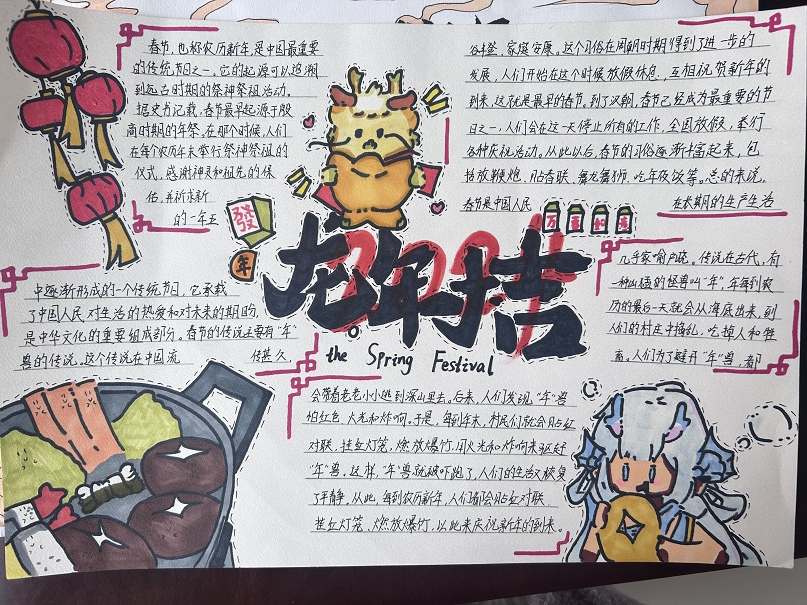 春节,也称农历新年,是中国最重要
的传统节日之一,它的起源可以追溯
到远古时期的祭神祭祖活动。
据史书记载,春节最早起源于殷
商时期的年祭,在那个时候,人们
在每个农历年末举行祭神祭祖的
仪式,感谢神灵和祖先的保
佑,并祈求新
的一年五
谷丰登、家庭安康。这个习俗在周朝时期得到了进一步的
发展,人们开始在这个时候放假休息,互相祝贺新年的
到来,这就是最早的春节。到了汉朝,春节已经成为最重要的节
日之一,人们会在这一天停止所有的工作,全国放假,举行
各种庆祝活动。从此以后,春节的习俗逐渐丰富起来,包
括放鞭炮、贴春联、舞龙舞狮、吃年夜饭等。总的来说,
春节是中国人民
在长期的生产生活
發
年
龙年大吉
2024
the Spring Festival
中逐渐形成的一个传统节日,它承载
了中国人民对生活的热爱和对未来的期盼,
是中华文化的重要组成部分。春节的传说主要有“年”
兽的传说。这个传说在中国流
传甚久,
几乎家喻户晓。传说在古代,有
一种凶猛的怪兽叫“年”,年每到农
历的最后一天就会从海底出来,到
人们的村庄中捣乱,吃掉人和牲
畜,人们为了避开“年”兽,都
会带着老老小小逃到深山里去。后来,人们发现“年”兽
怕红色、火光和炸响。于是,每到年末,村民们就会贴红
对联、挂红灯笼、燃放爆竹,用火光和炸响来驱赶
“年”兽。这样,“年”兽就被吓跑了,人们的生活又恢复
了平静。从此,每到农历新年,人们都会贴红对联
挂红灯笼、燃放爆竹,以此来庆祝新年的到来。